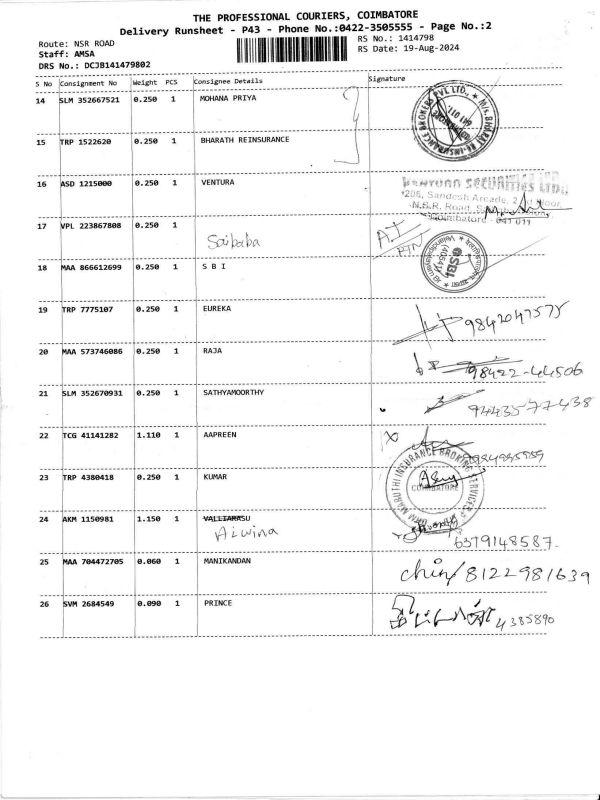 THE PROFESSIONAL COURIERS, COIMBATORE
Delivery Runsheet - P43 - Phone No.:0422-3505555 - Page No.:2
Route: NSR ROAD
RS No.: 1414798
Staff: AMSA
RS Date: 19-Aug-2024
DRS No.: DCJB141479802
S No Consignment No Weight PCS Consignee Details Signature
14 SLM 352667521 0.250 1 MOHANA PRIYA
15 TRP 1522620 0.250 1 BHARATH REINSURANCE
16 ASD 1215000 0.250 1 VENTURA
SECURITIES LTD.
206, Sandesh Arcade, 2nd Floor,
N.S.R. Road,
Coimbatore - 641 011
17 VPL 223867808 0.250 1
Saibaba
18 MAA 866612699 0.250 1 S B I
SBI
19 TRP 7775107 0.250 1 EUREKA
9842047575
20 MAA 573746086 0.250 1 RAJA
98422-44506
21 SLM 352670931 0.250 1 SATHYAMOORTHY
9443577438
22 TCG 41141282 1.110 1 AAPREEN
23 TRP 4380418 0.250 1 KUMAR
MARUTHI INSURANCE BROKING SERVICES
COIMBATORE
24 AKM 1150981 1.150 1 VALLIARASU
Alwina
6379148587
25 MAA 704472705 0.060 1 MANIKANDAN
8122981639
26 SVM 2684549 0.090 1 PRINCE
4385890